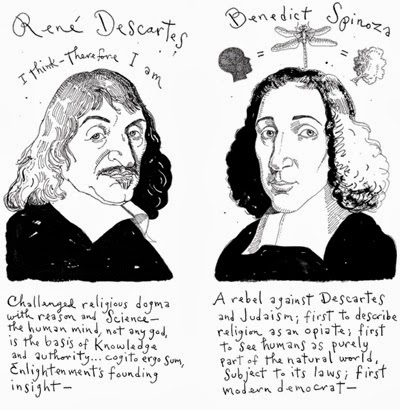 René Descartes
I think - Therefore I am
Challenged religious dogma
with reason and Science—
the human mind, not any god,
is the basis of Knowledge
and authority... cogito ergo sum,
Enlightenment's founding
insight—
Benedict Spinoza
= =
A rebel against Descartes
and Judaism; first to describe
religion as an opiate; first
to see humans as purely
part of the natural world,
subject to its laws; first
modern democrat—